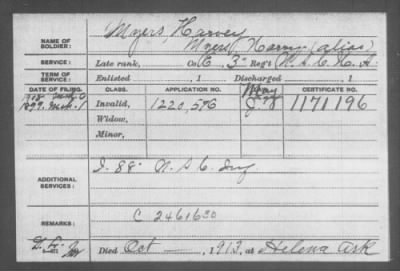 NAME OF SOLDIER: Myers, Harvey
Myers, Harry (alias)
SERVICE: Late rank, Co. C, 3" Reg't U.S.C.H.A.
TERM OF SERVICE: Enlisted , 1 Discharged , 1
DATE OF FILING. CLASS. APPLICATION NO. CERTIFICATE NO.
1899. Mch. 1 Invalid, 1220,576 1171196
Widow,
Minor,
ADDITIONAL SERVICES: I. 88" U.S.C. Inf.
REMARKS: C 2461630
Died Oct , 1913, at Helena Ark